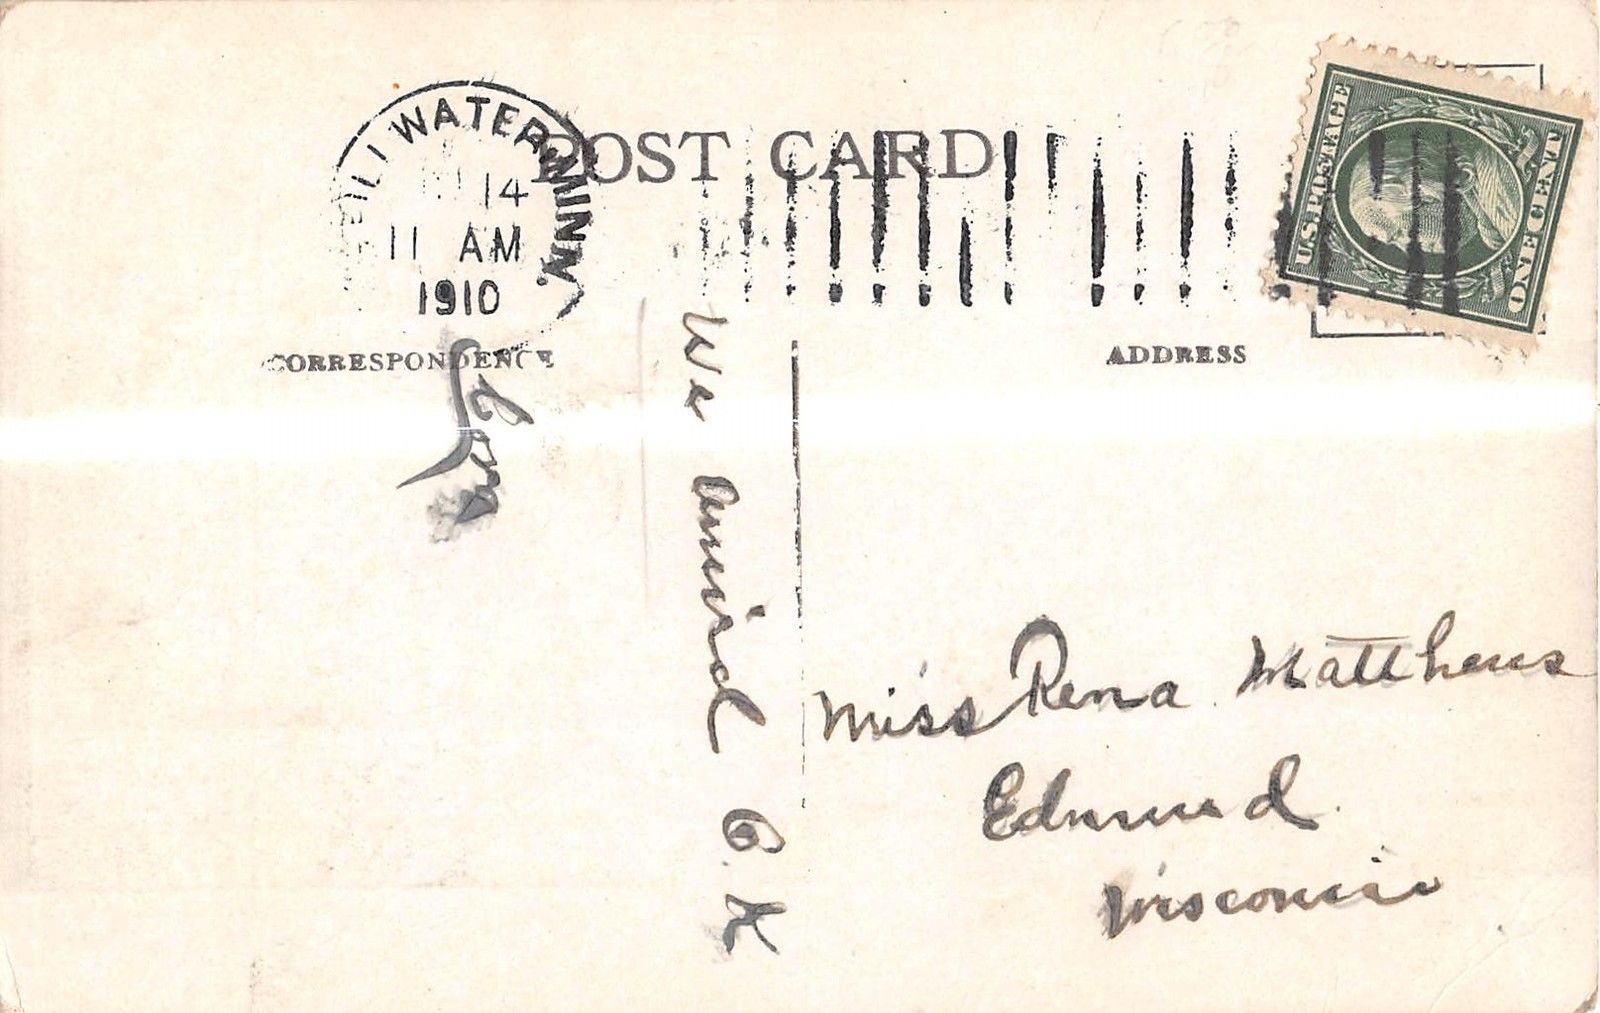 WATER, MINN.
14
11 AM
1910
POST CARD
U.S. POSTAGE
ONE CENT
CORRESPONDENCE
ADDRESS
We arrived O.K
Miss Rena Matthews
Edmund
Wisconsin